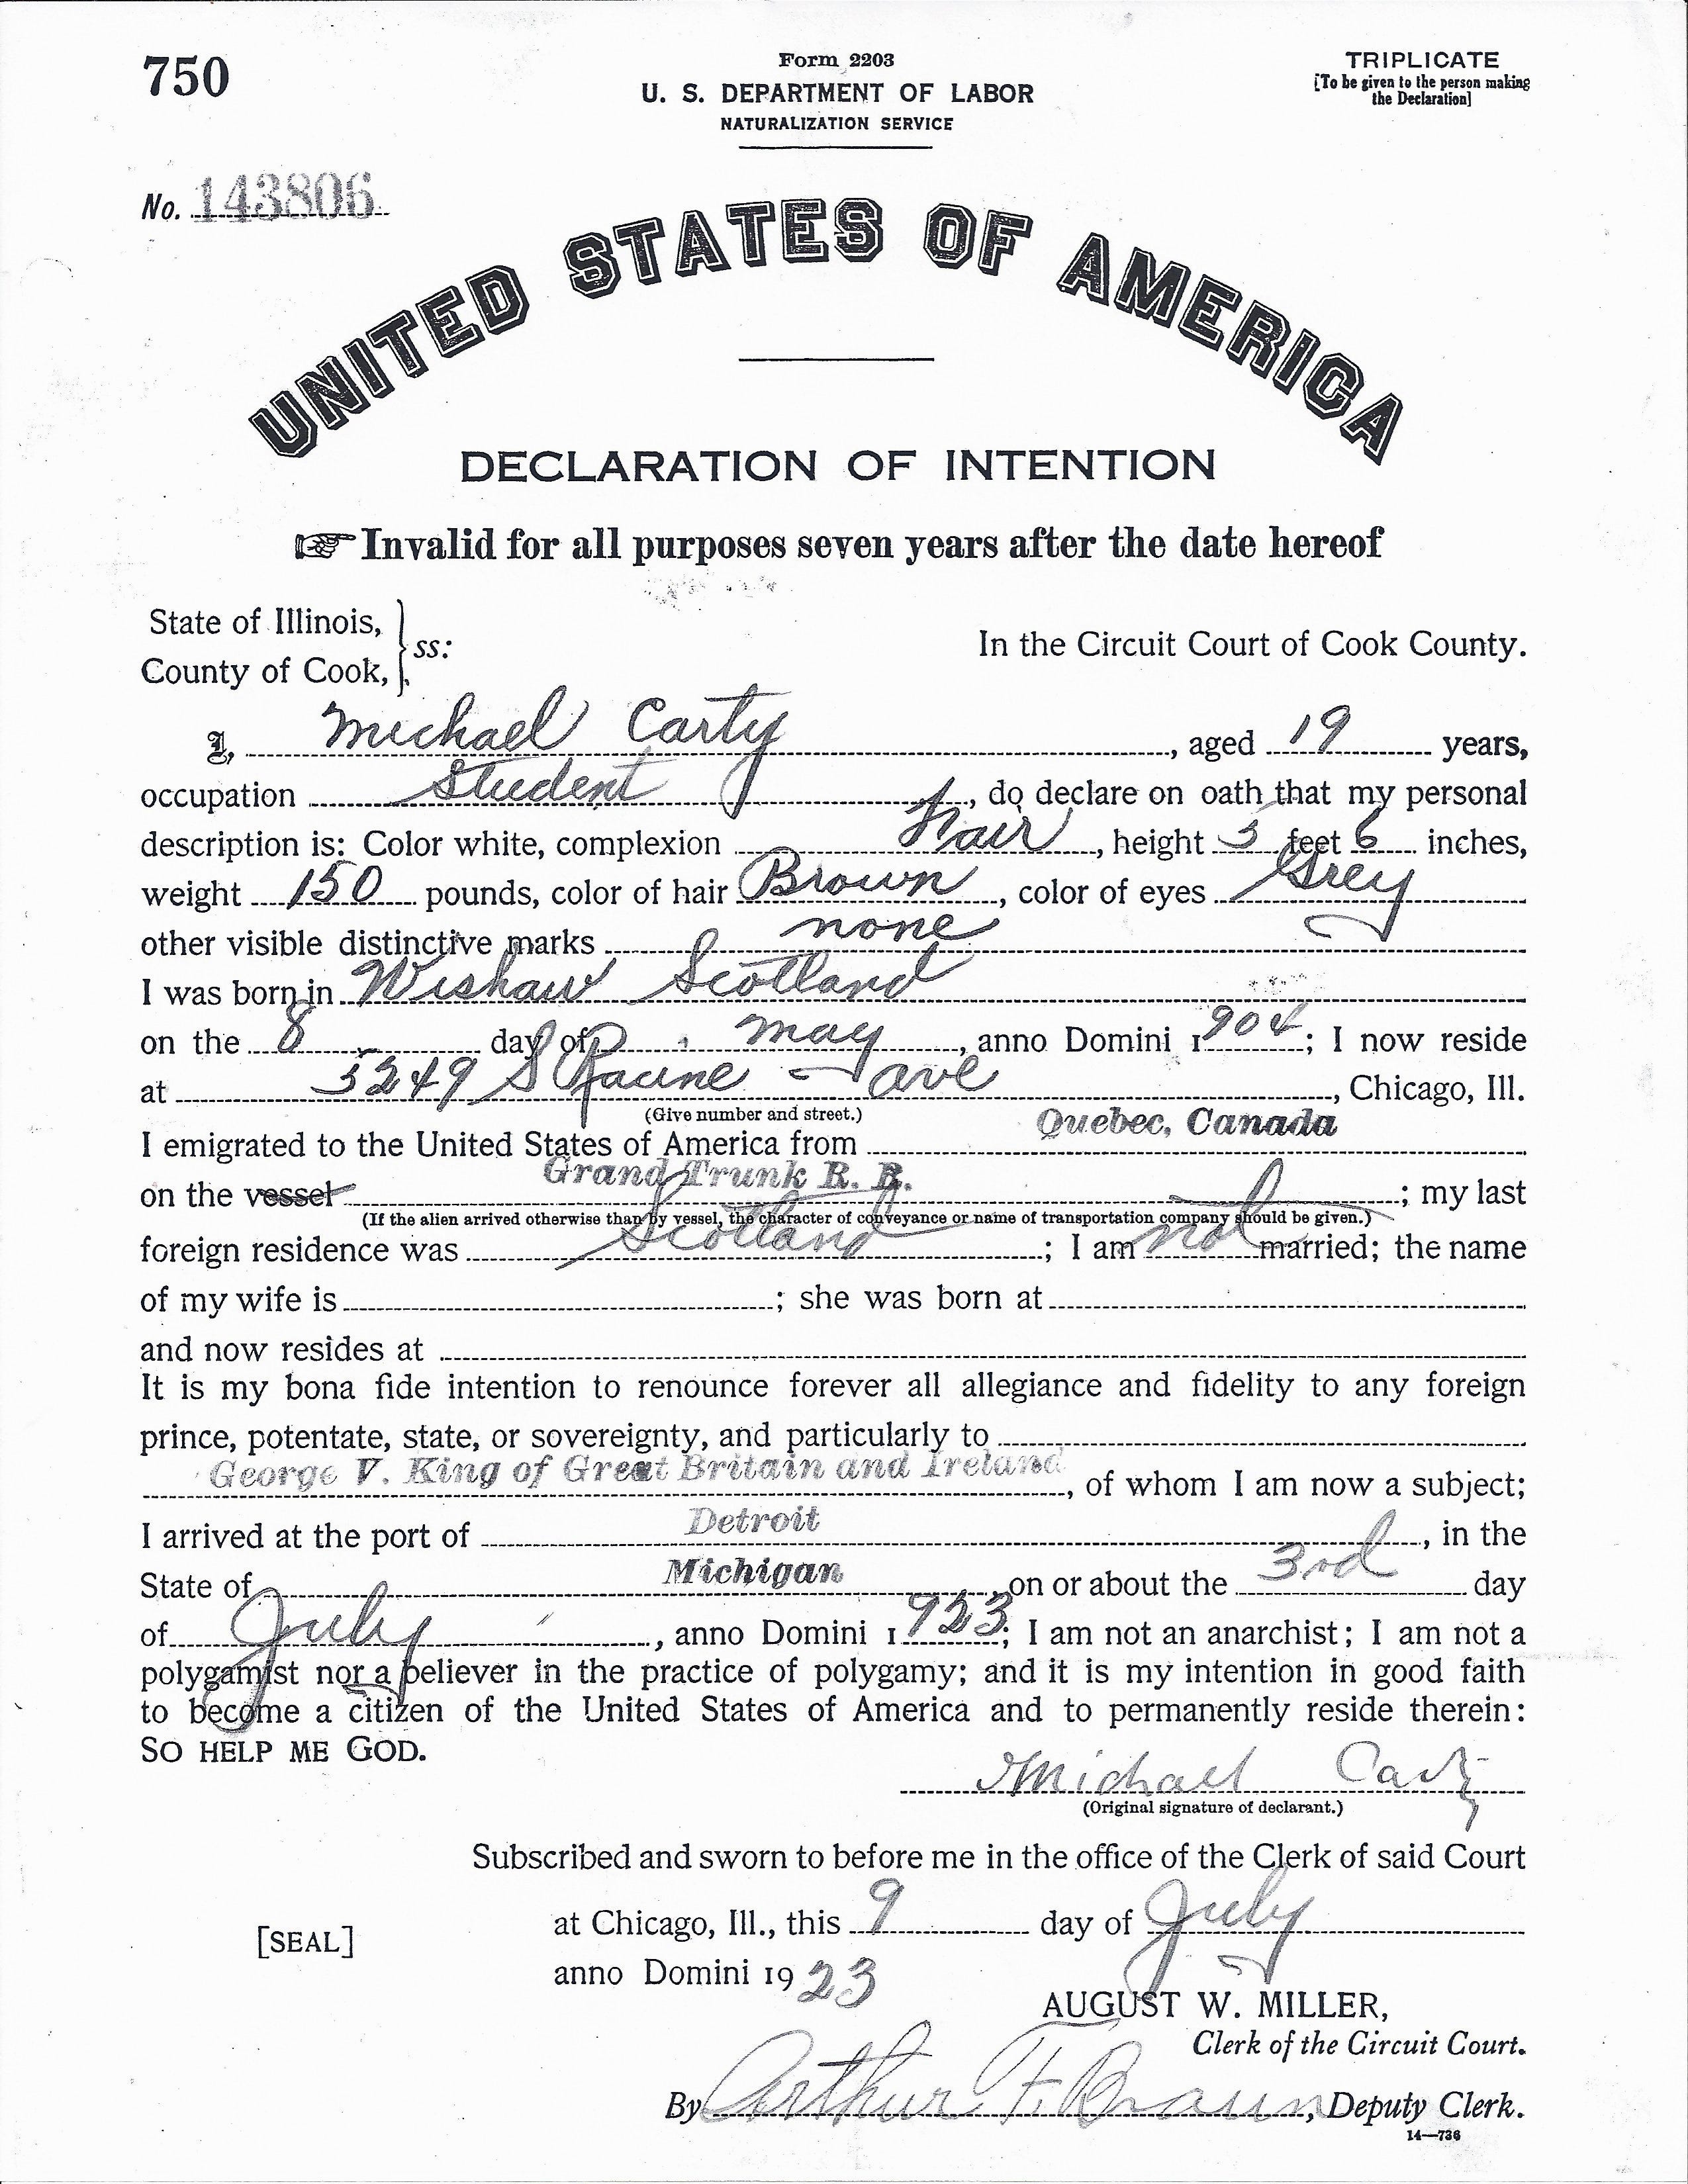 750
Form 2203
U. S. DEPARTMENT OF LABOR
NATURALIZATION SERVICE
TRIPLICATE
[To be given to the person making
the Declaration]
No. 143806
UNITED STATES OF AMERICA
DECLARATION OF INTENTION
☞ Invalid for all purposes seven years after the date hereof
State of Illinois,
County of Cook, ss:
In the Circuit Court of Cook County.
I, Michael Carty, aged 19 years,
occupation Student, do declare on oath that my personal
description is: Color white, complexion Fair, height 5 feet 6 inches,
weight 150 pounds, color of hair Brown, color of eyes Grey
other visible distinctive marks none
I was born in Wishaw Scotland
on the 8 day of May, anno Domini 1904; I now reside
at 5249 S Racine Ave, Chicago, Ill.
(Give number and street.)
I emigrated to the United States of America from Quebec, Canada
on the vessel Grand Trunk R. R.; my last
(If the alien arrived otherwise than by vessel, the character of conveyance or name of transportation company should be given.)
foreign residence was Scotland; I am not married; the name
of my wife is ; she was born at
and now resides at
It is my bona fide intention to renounce forever all allegiance and fidelity to any foreign
prince, potentate, state, or sovereignty, and particularly to
George V. King of Great Britain and Ireland, of whom I am now a subject;
I arrived at the port of Detroit, in the
State of Michigan on or about the 3rd day
of July, anno Domini 1923; I am not an anarchist; I am not a
polygamist nor a believer in the practice of polygamy; and it is my intention in good faith
to become a citizen of the United States of America and to permanently reside therein:
SO HELP ME GOD.
Michael Carty
(Original signature of declarant.)
Subscribed and sworn to before me in the office of the Clerk of said Court
[SEAL]
at Chicago, Ill., this 9 day of July
anno Domini 1923
AUGUST W. MILLER,
Clerk of the Circuit Court.
By Arthur F. Braun, Deputy Clerk.
14—736